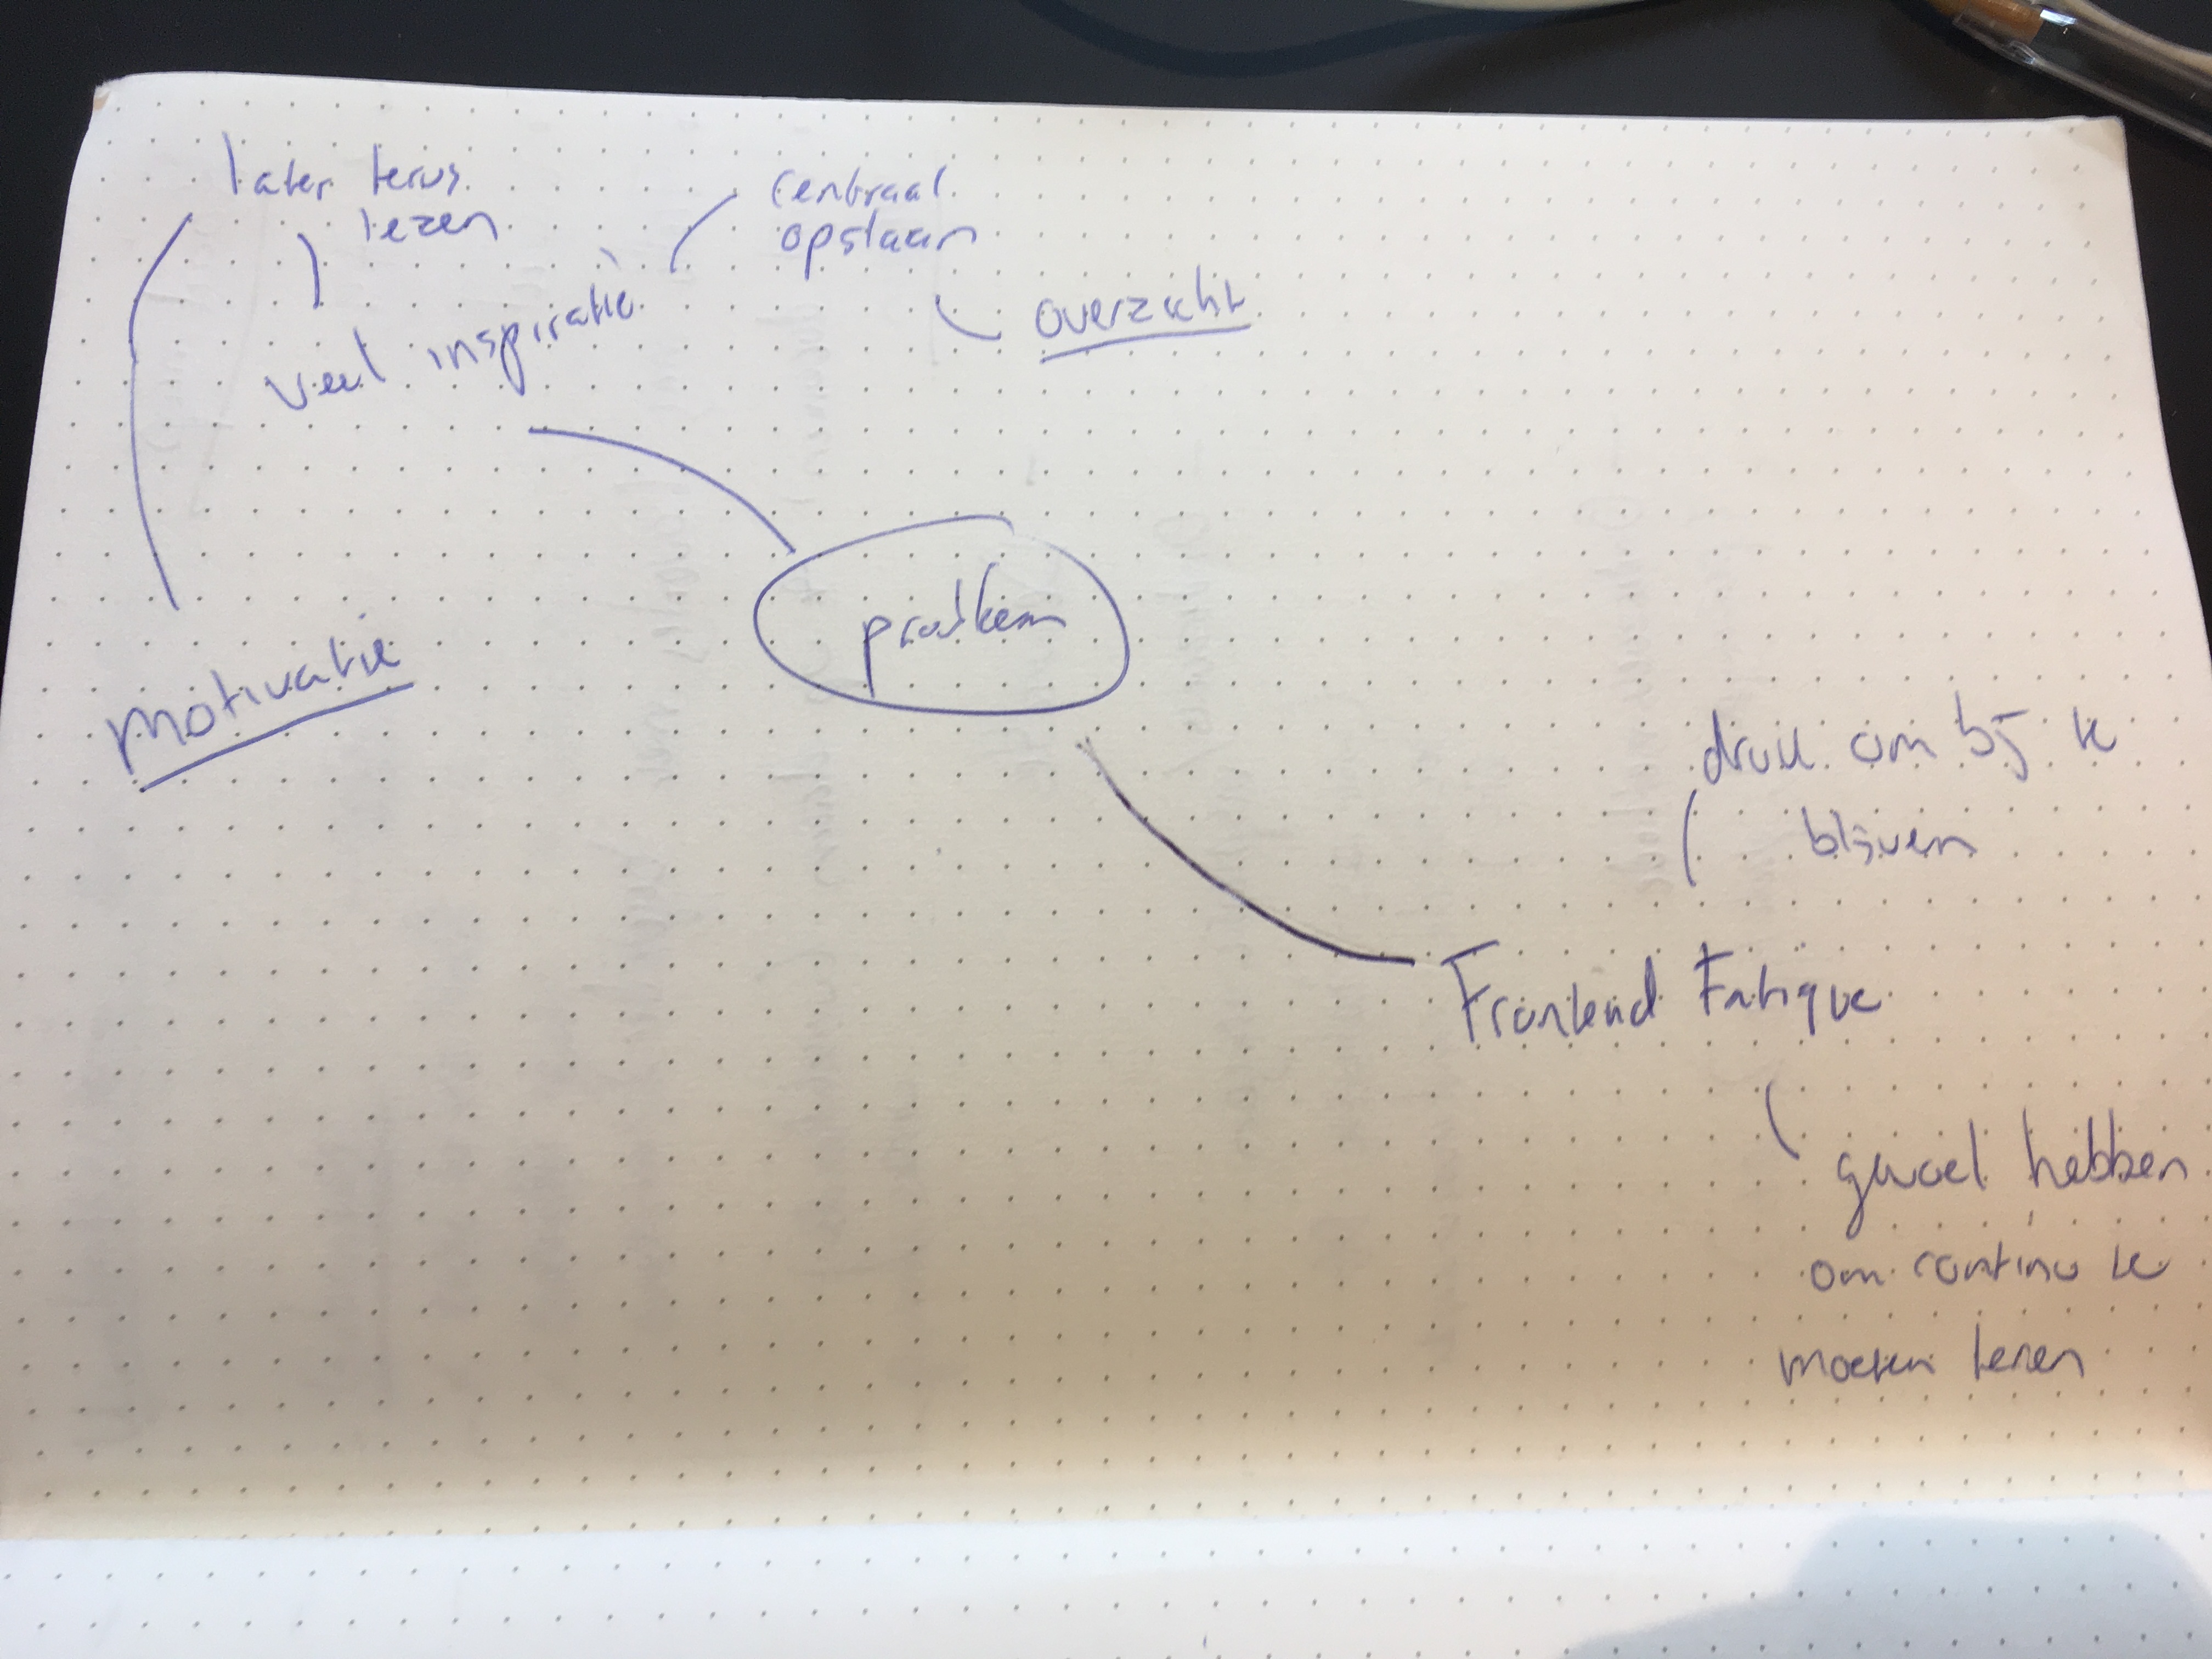 later terug
lezen
centraal
opslaan
overzicht
veel inspiratie
probleem
motivatie
druk om bij te
blijven
Frontend Fatique
gevoel hebben
om continu te
moeten leren